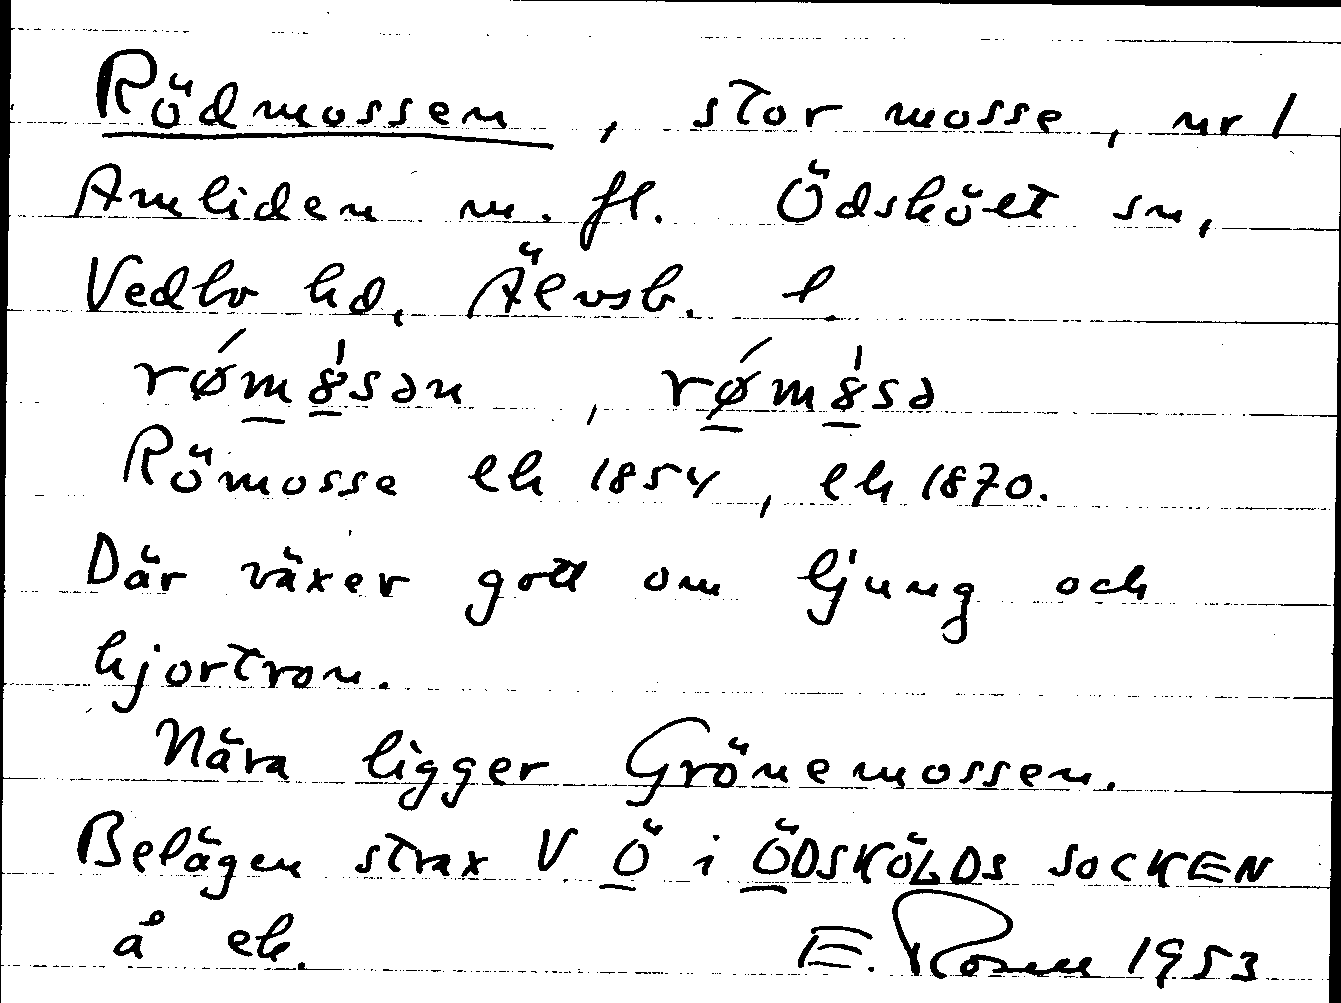 Rödmossen, stor mosse, nr 1
Amliden m. fl. Ödskölt sn,
Vedbo hd, Älvsb. l.
rǿmȣ̍sən, rǿmȣ̍sə
Römosse ek 1854, ek 1870.
Där växer gott om ljung och
hjortron.
Nära ligger Grönemossen.
Belägen strax V Ö i ÖDSKÖLDS SOCKEN
å ek. E. Rosell 1953